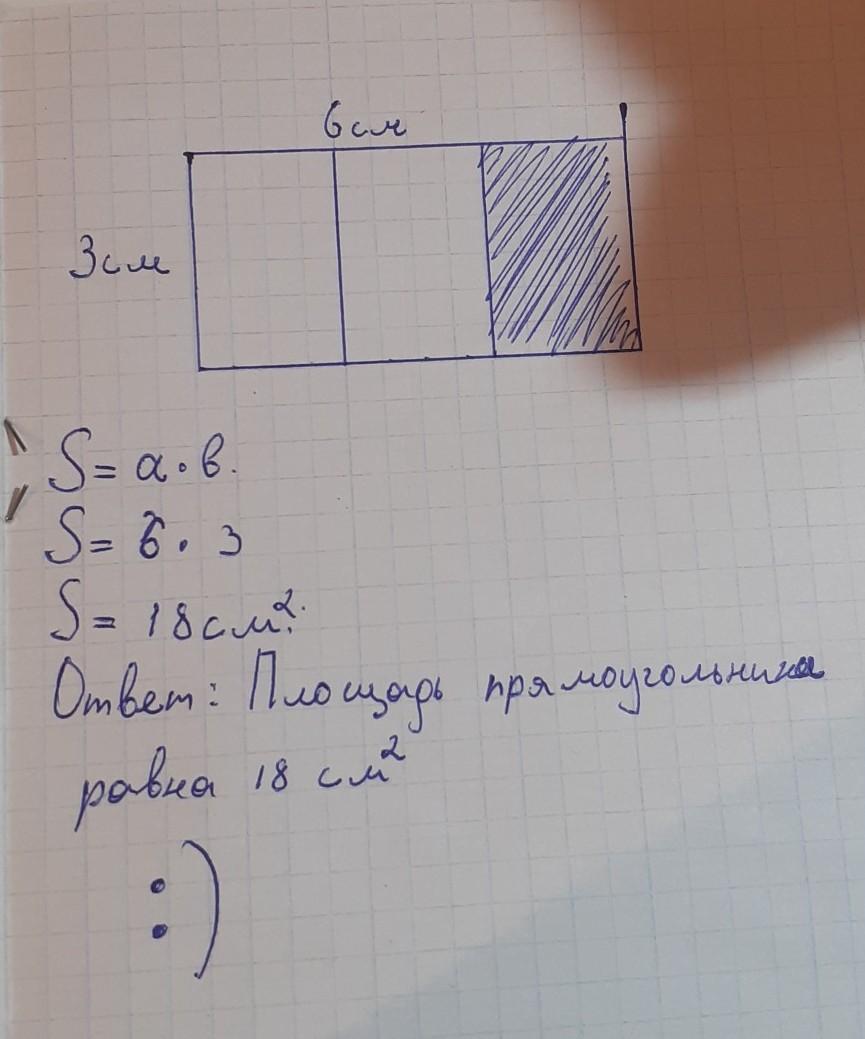 6см
3см
S = а · в.
S = 6 · 3
S = 18см².
Ответ: Площадь прямоугольника
равна 18 см²
:)